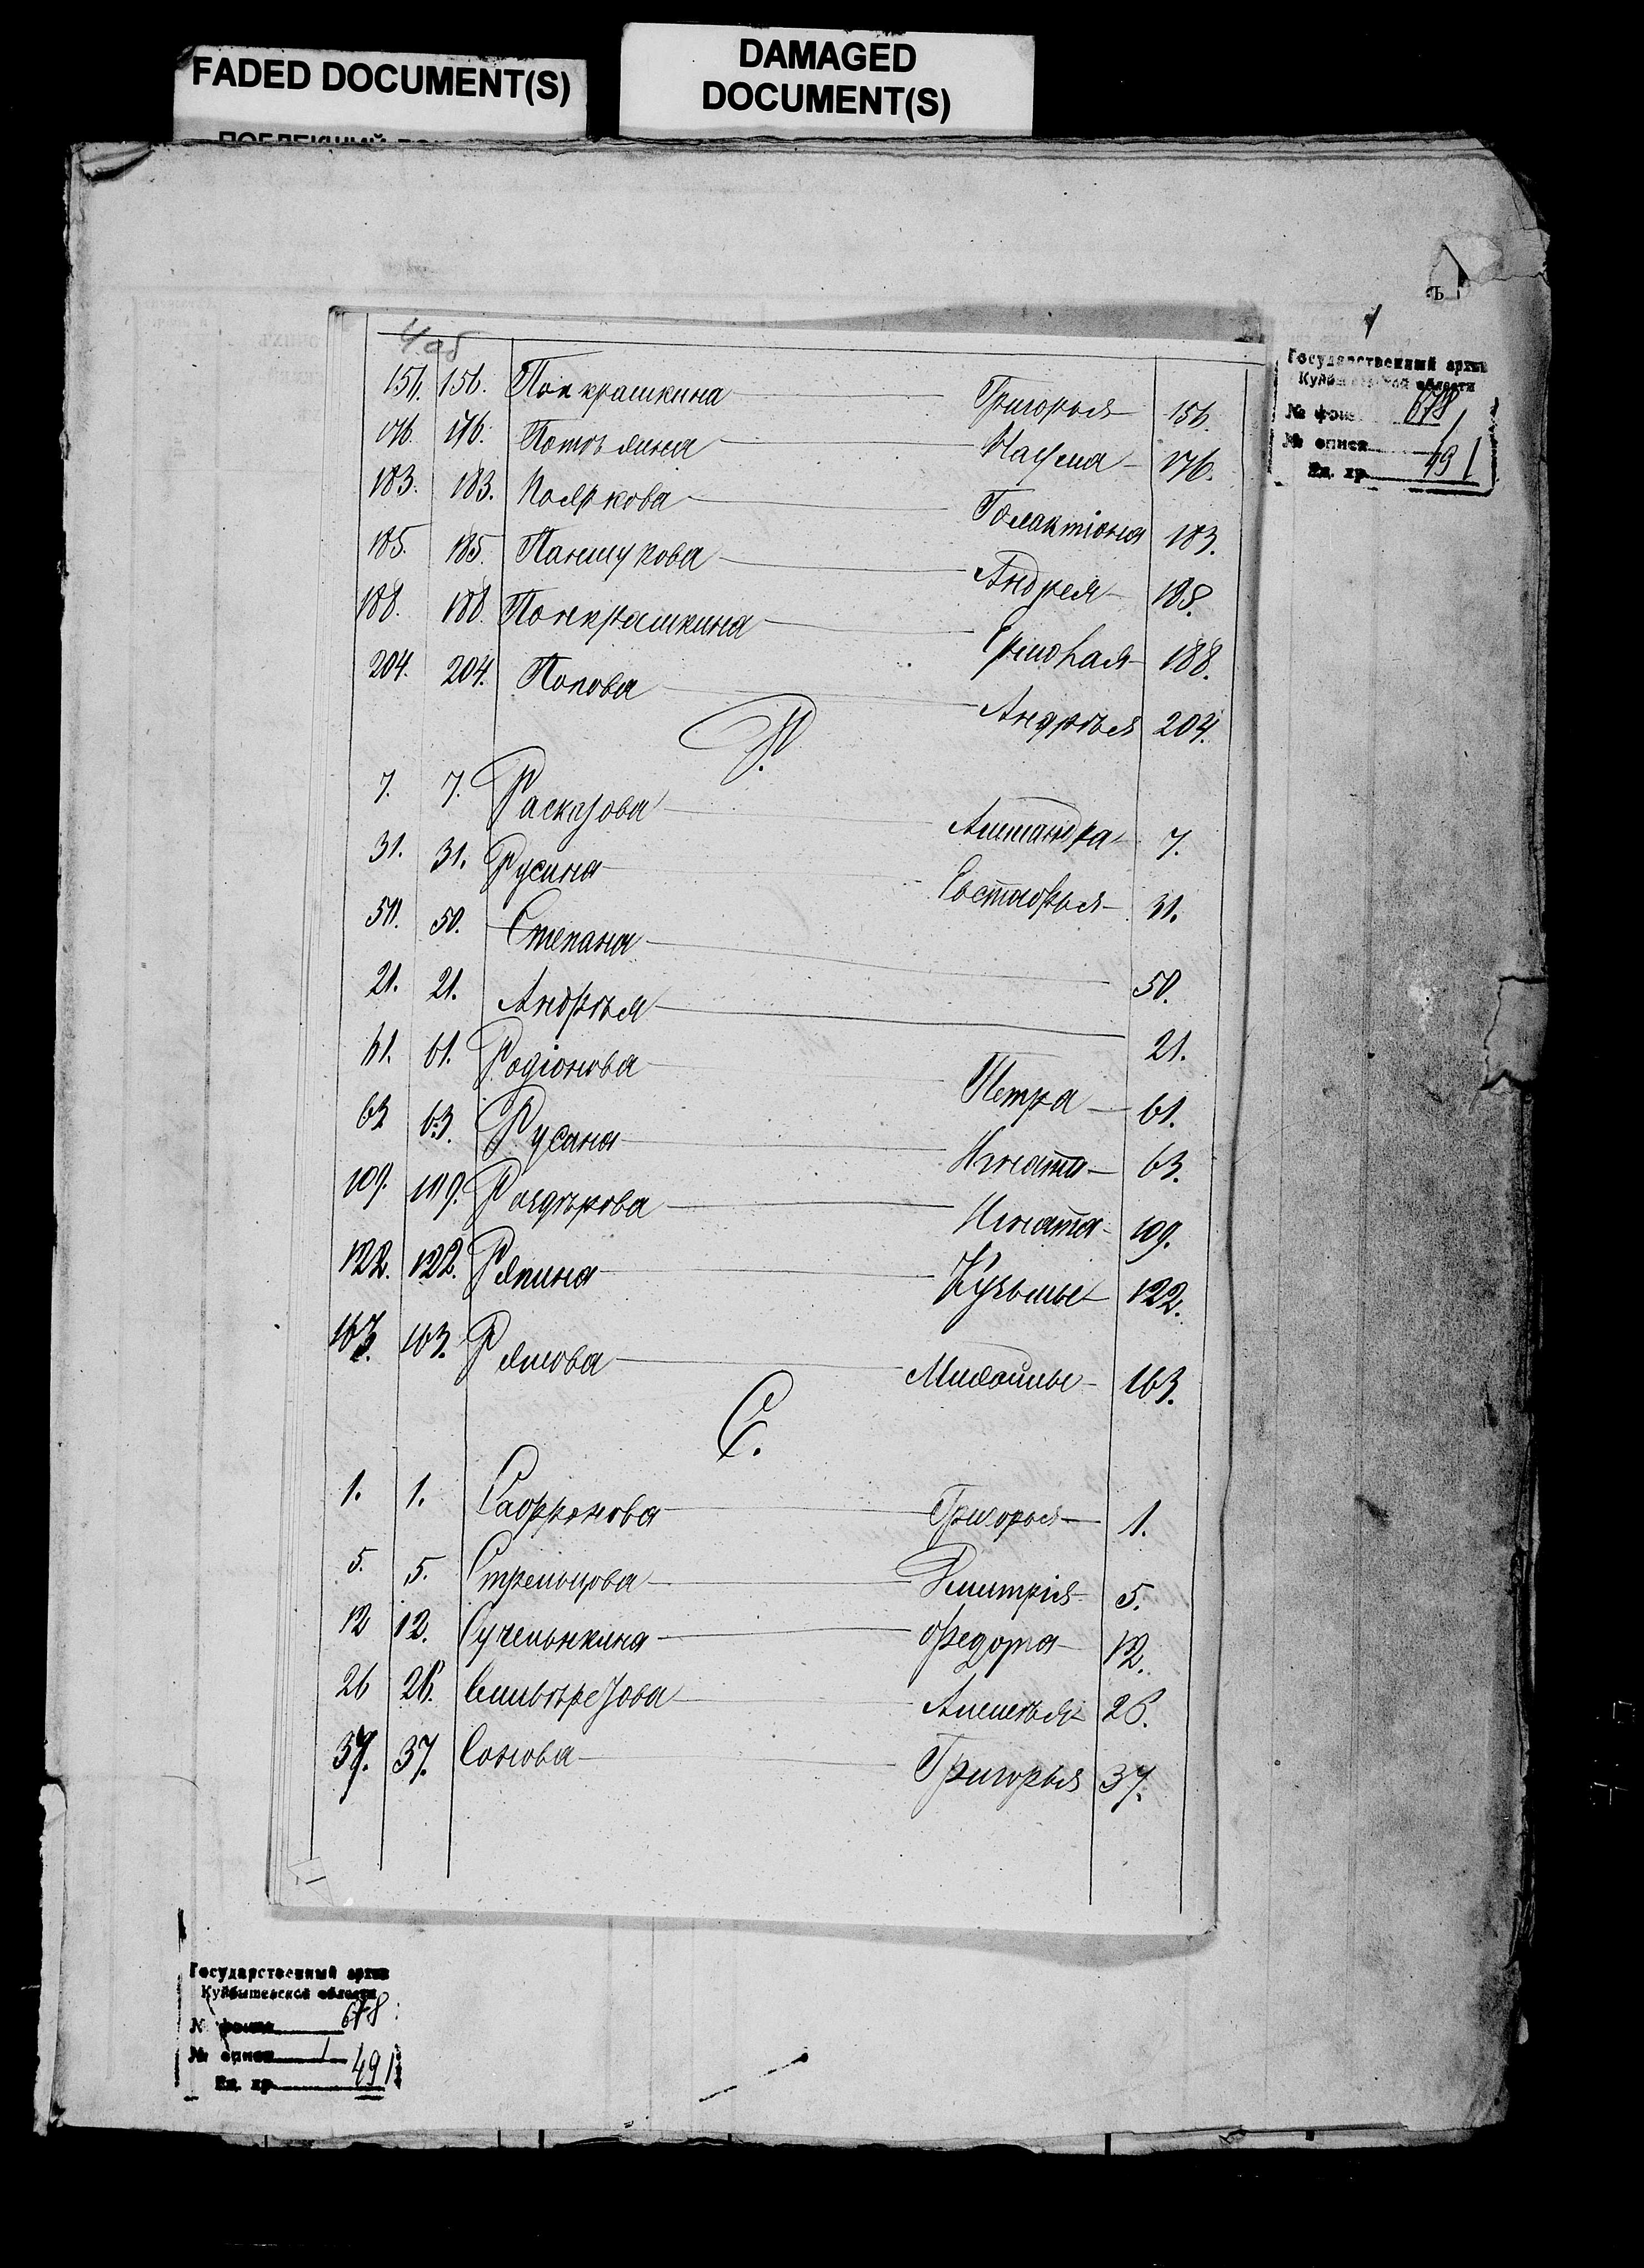 FADED DOCUMENT(S)
DAMAGED
DOCUMENT(S)
Ъ
4 об
Государственный архив
Куйбышевской области
№ фонд 678
№ описи 1
Ед. хр. 491
156. 156. Понкрашкина Григорья 156.
176. 176. Наума 176.
183. 183. Пояркова Галактіона 183.
185. 185. Паншукова Андрея 185.
188. 188. Понкрашкина Ермолая 188.
204. 204. Попова Андрѣя 204.
Р.
7. 7. Расказова 7.
31. 31. Русина Евстафья 31.
50. 50. Степана 50.
21. 21. Андрѣя 21.
61. 61. Родіонова Петра 61.
63 63. Русина Игната 63.
109. 109. Раздѣрова Игната 109.
122. 122. Ряпина Кузьмы 122.
163. 163. Рямова Михайлы 163.
С.
1. 1. Сафронова Григорья 1.
5. 5. Стрельцова Дмитрія 5.
12 12. Сученынкина Федота 12.
26 26. Селивѣрстова Алексѣя 26.
37. 37. Сонова Григорья 37.
Государственный архив
Куйбышевской области
№ фонда 678
№ описи 1
Ед. хр. 491